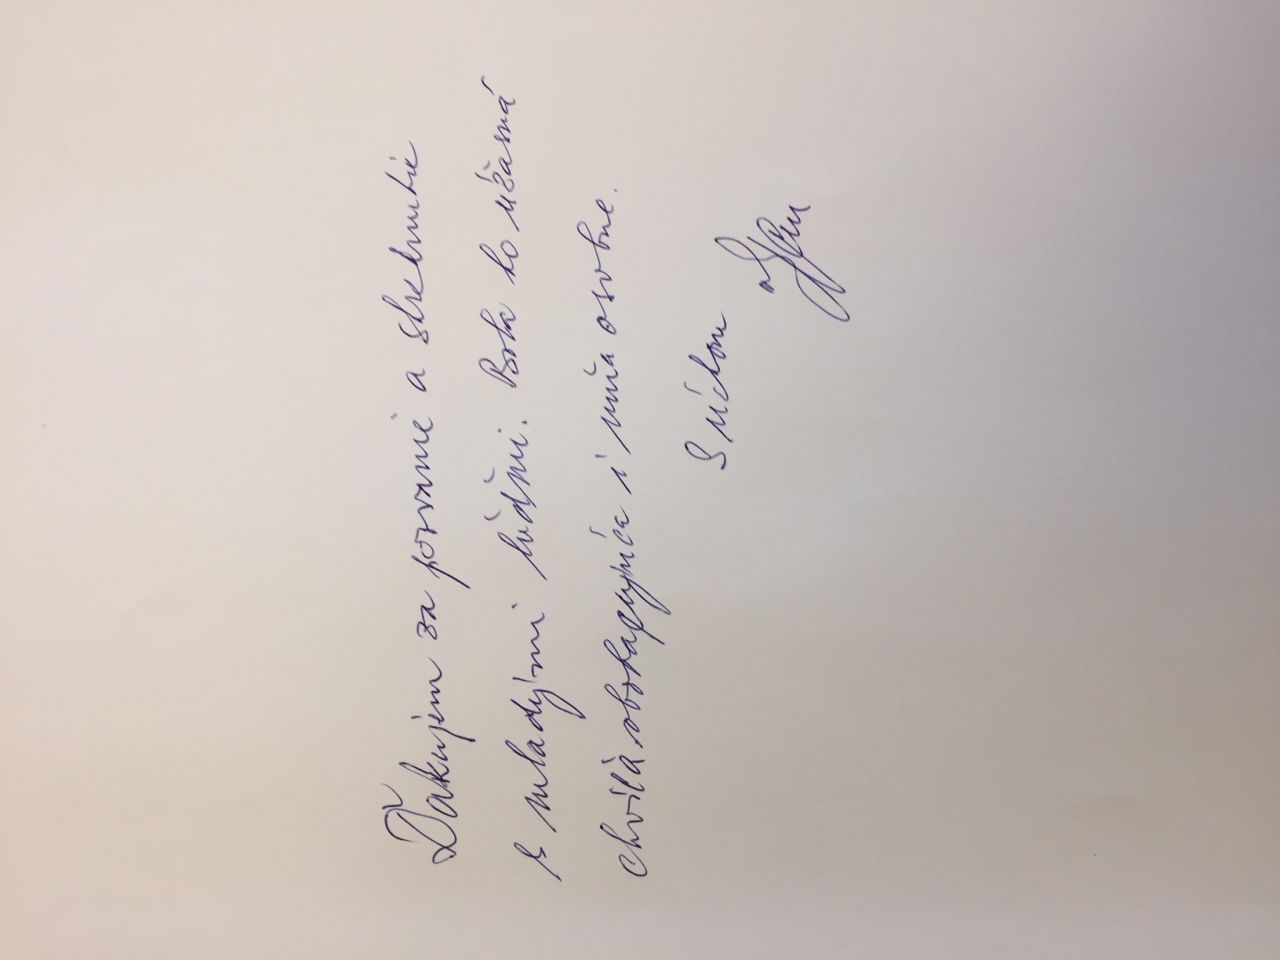 Ďakujem za pozvanie a stretnutie
s mladými ľuďmi. Bola to úžasná
chvíľa obohacujúca i mňa osobne.
S úctou